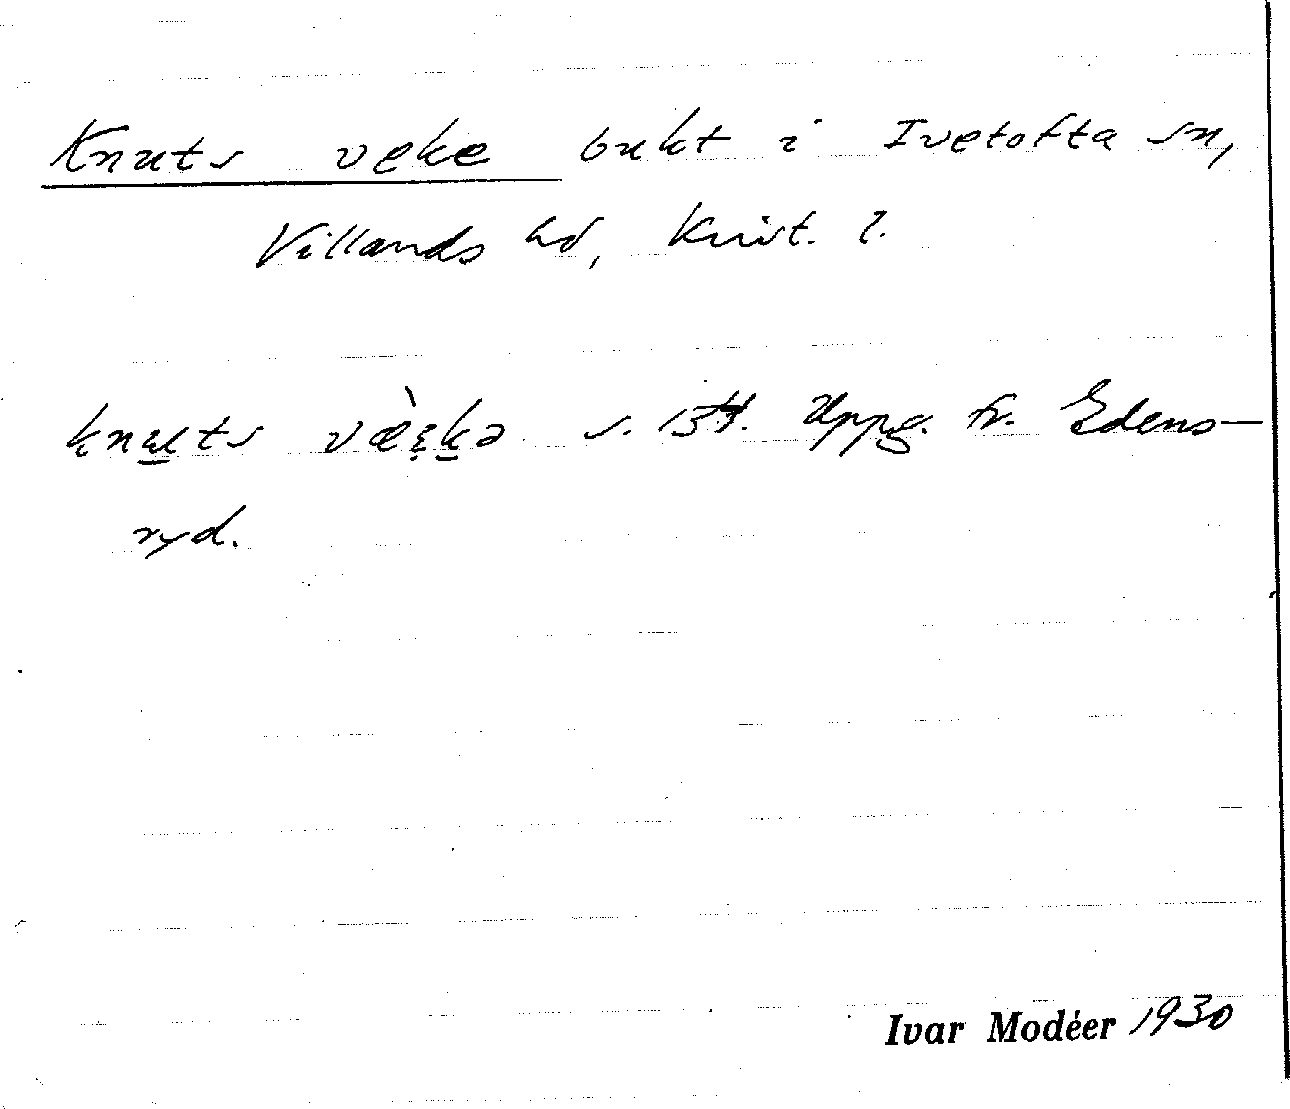 Knuts veke bukt i Ivetofta sn,
Villands hd, Krist. l.
knuts væ̀kə s. Uppg. fr. Edens-
ryd.
Ivar Modéer 1930